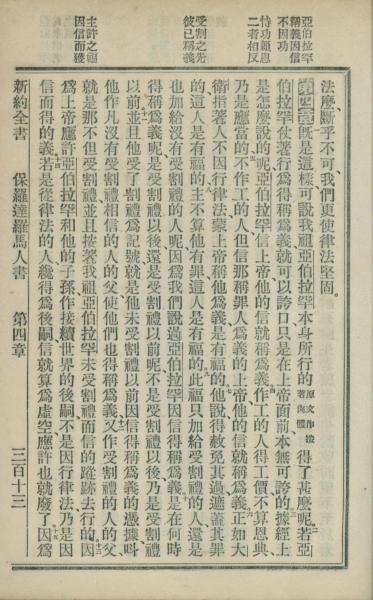 亞伯拉罕
稱義因信
不因功
恃功賴恩
二者相反
受割之先
彼已稱義
主許之福
因信而獲
法麼、斷乎不可、我們更使律法堅固。
第四章既是這樣、可說我祖亞伯拉罕本身所行的得了甚麼呢、若亞
伯拉罕仗著行爲得稱爲義、就可以誇口、只是在上帝面前本無可誇的、據經上
是怎麼說的呢、亞伯拉罕信上帝、他的信就稱爲義、作工的人得工價、不算恩典、
乃是應當的、不作工的人、但信那稱罪人爲義的上帝、他的信就稱爲義、正如大
衛指著人不因行律法、蒙上帝稱他爲義、是有福的、他說得赦免其過、遮蓋其罪
的、這人是有福的、主不算他有罪、這人是有福的、此福只加給受割禮的人、還是
也加給沒有受割禮的人呢、因爲我們說過亞伯拉罕因信得稱爲義、是在何時
得稱爲義呢、是受割禮以後、還是受割禮以前呢、不是受割禮以後、乃是受割禮
以前、並且他受了割禮爲記號、就是他未受割禮以前、因信得稱爲義的憑據、叫
他作凡沒有受割禮相信的人的父、使他們也得稱爲義、又作受割禮的人的父、
就是那不但受割禮、並且按著我祖亞伯拉罕未受割禮而信的蹤跡去行的、因
爲上帝應許亞伯拉罕和他的子孫、作接續世界的後嗣、不是因行律法、乃是因
信而得的義、若是從律法的人纔得爲後嗣、信就算爲虛空、應許也就廢了、因爲
新約全書 保羅達羅馬人書 第四章 三百十三